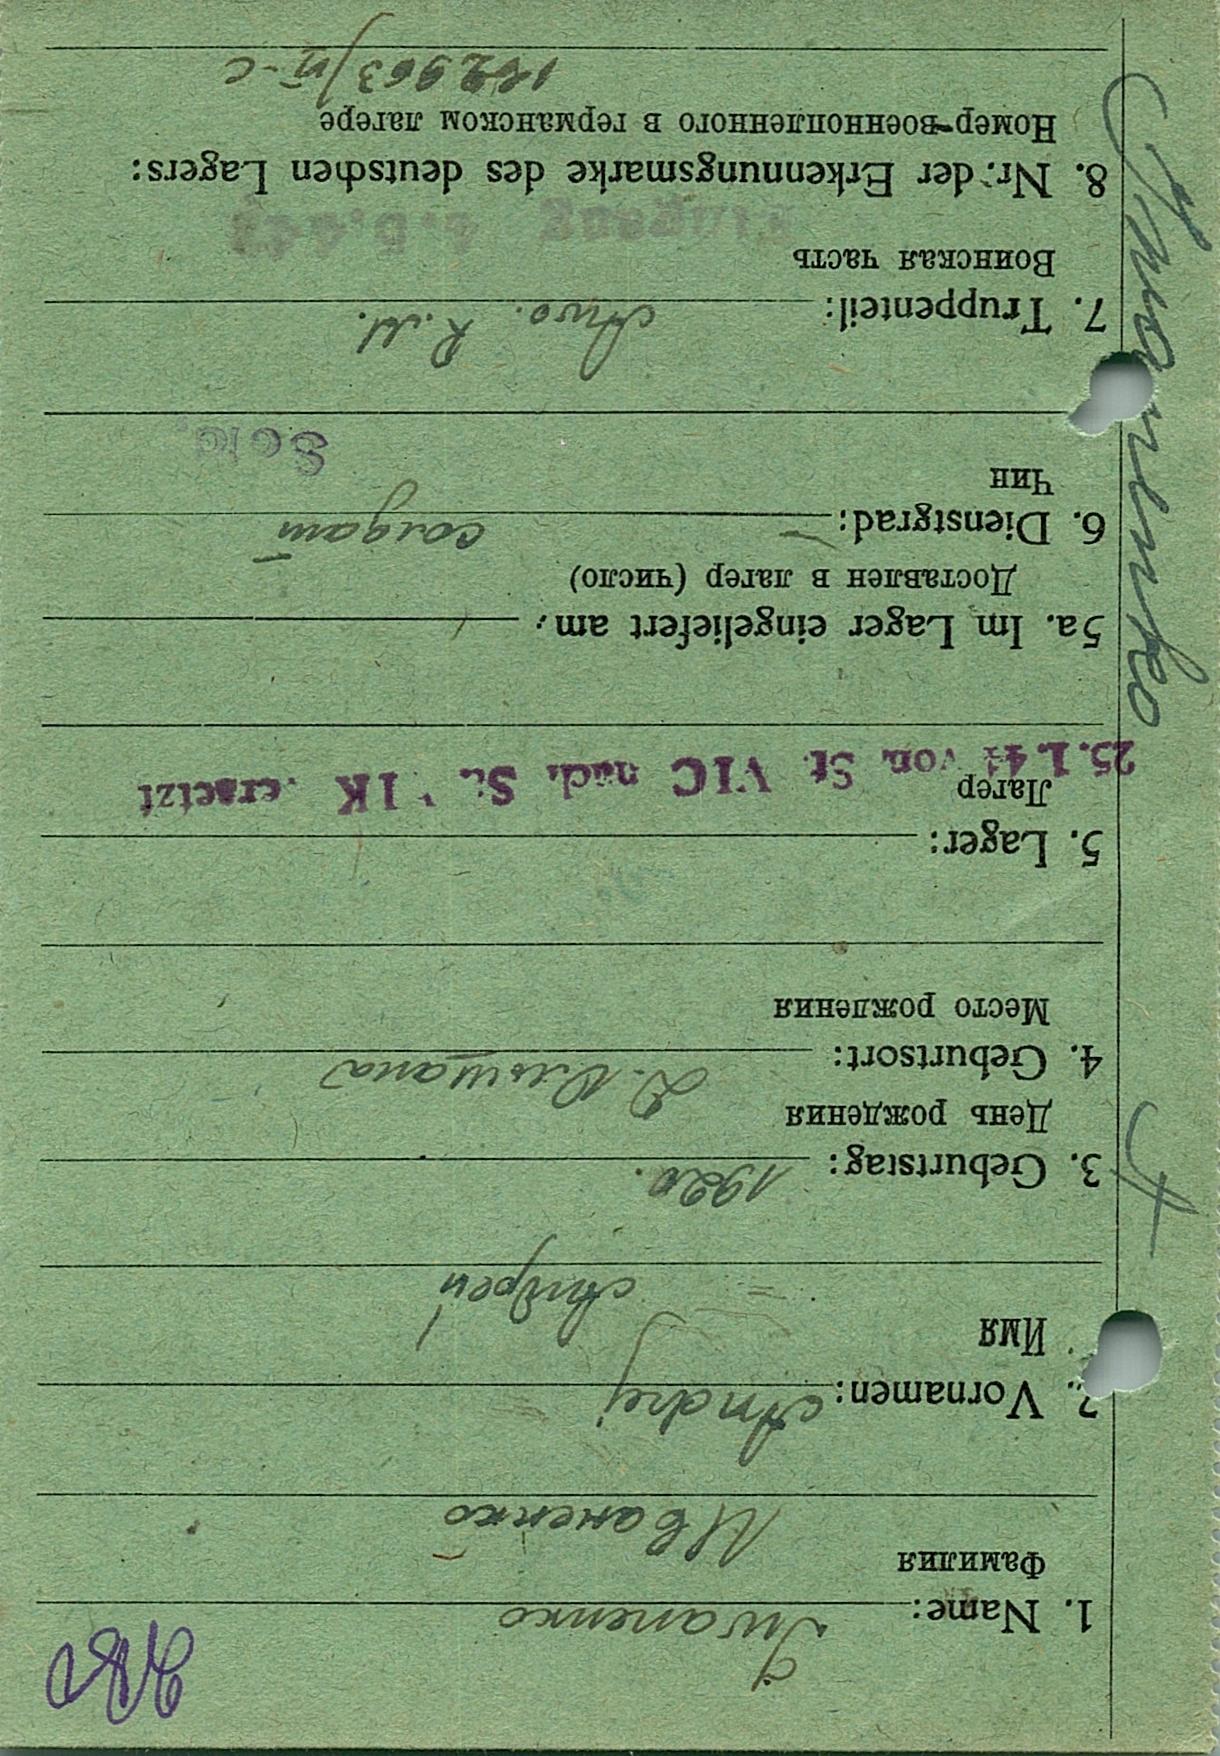 1. Name: Iwanenko
Фамилия
Иваненко
2. Vornamen: Andrej
Имя
Андрей
3. Geburtstag: 1920.
День рождения
4. Geburtsort:
Место рождения
5. Lager:
Лагер
25.1.44 von St VIC nach St. VIK versetzt
5a. Im Lager eingeliefert am:
Доставлен в лагер (число)
6. Dienstgrad: солдат
Чин
Sold.
7. Truppenteil:
Воинская часть
Eingang
8. Nr. der Erkennungsmarke des deutschen Lagers:
Номер военнопленного в германском лагере
/VI-C